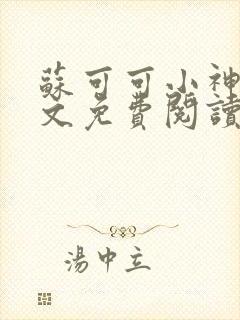 蘇可可小神
文免費閱讀
湯中立